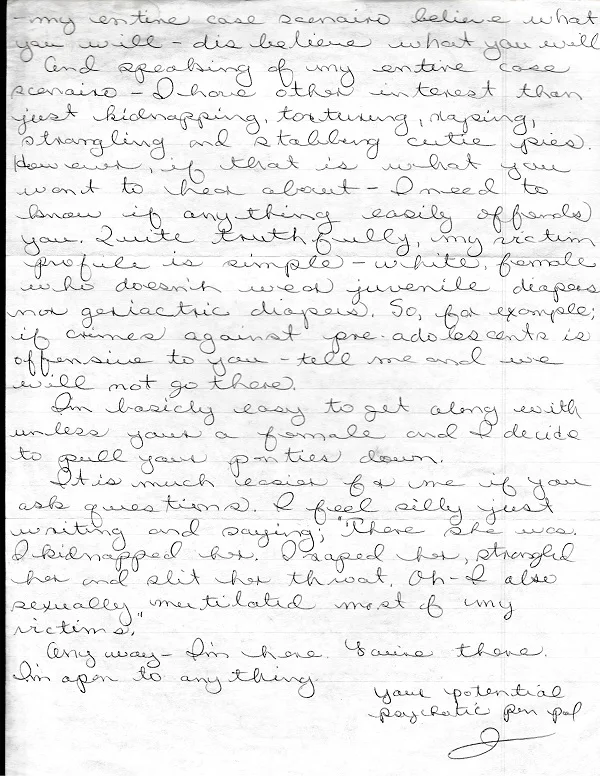 - my entire case scenairo believe what
you will - dis believe what you will
And speaking of my entire case
scenairo - I have other interest than
just kidnapping, torturing, raping,
strangling and stabbing cutie pies.
However, if that is what you
want to hear about - I need to
know if anything easily offends
you. Quite truthfully, my victim
profile is simple - white, female
who doesn't wear juvenile diapers
nor geriactric diapers. So, for example;
if crimes against pre-adolescents is
offensive to you - tell me and we
will not go there.
I'm basicly easy to get along with
unless your a female and I decide
to pull your p-nties down.
It is much easier for me if you
ask questions. I feel silly just
writing and saying; "There she was.
I kidnapped her. I raped her, strangled
her and slit her throat. Oh - I also
sexually mutilated most of my
victims."
Any way - I'm here. You're there.
I'm open to any thing.
Your potential
psychotic pen pal